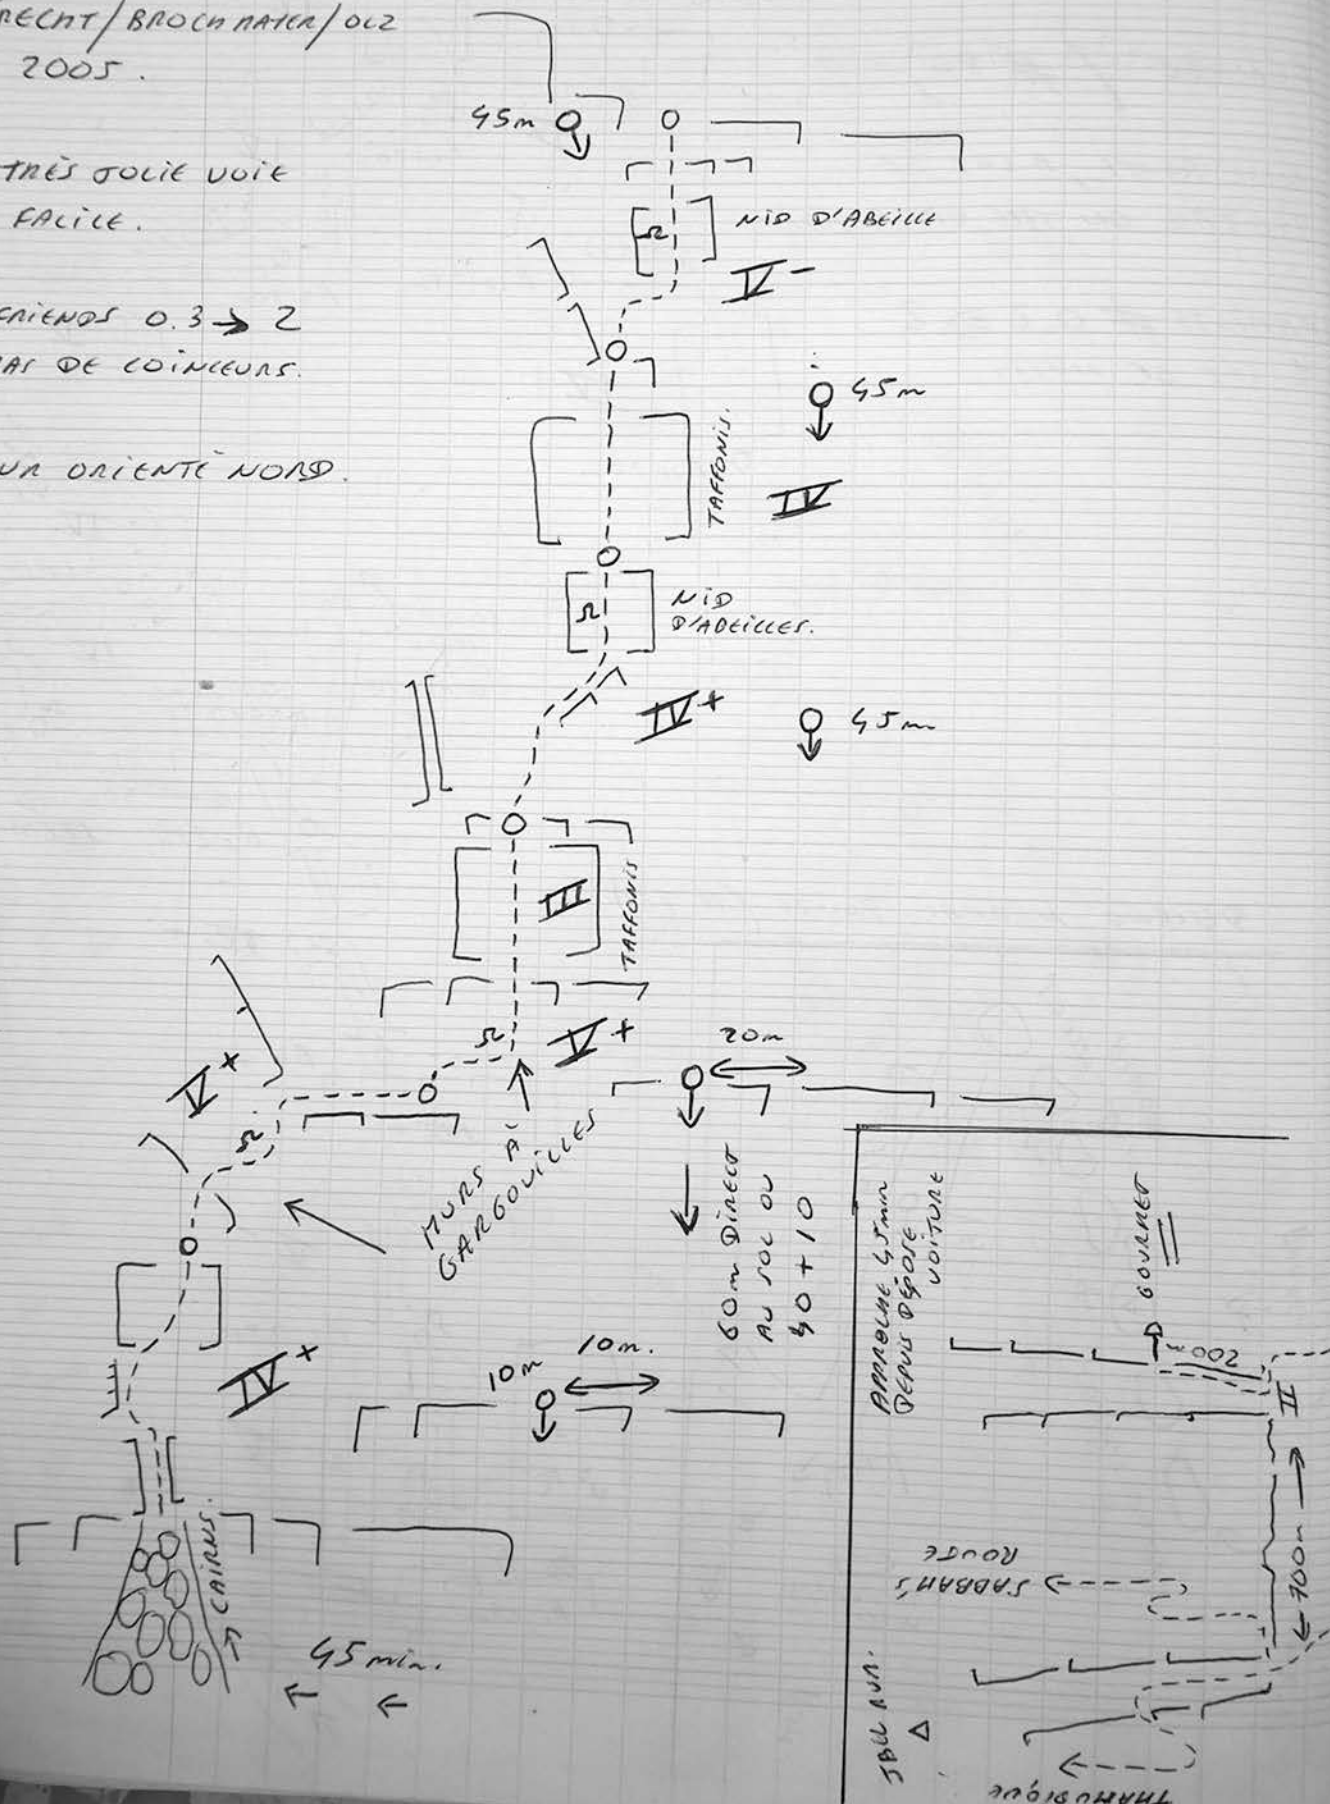 RECHT/BROCHMAYER/OLZ
2005.
TRÈS JOLIE VOIE
FACILE.
FRIENDS 0.3 → 2
PAS DE COINCEURS.
ORIENTÉ NORD.
45m
NID D'ABEILLE
V-
45m
TAFFONIS.
IV
NID
D'ABEILLES.
IV+
45m
III
TAFFONIS
V+
20m
V+
MURS À
GARGOUILLES
60m DIRECT
AU SOL OU
50+10
IV+
10m
10m.
CAIRNS.
45 min.
APPROCHE 45min
DEPUIS DÉPOSE
VOITURE
GOURMET
200m
II
700m
SABBAH'S
ROUTE
JBEL RUM.
THAMUDIQUE